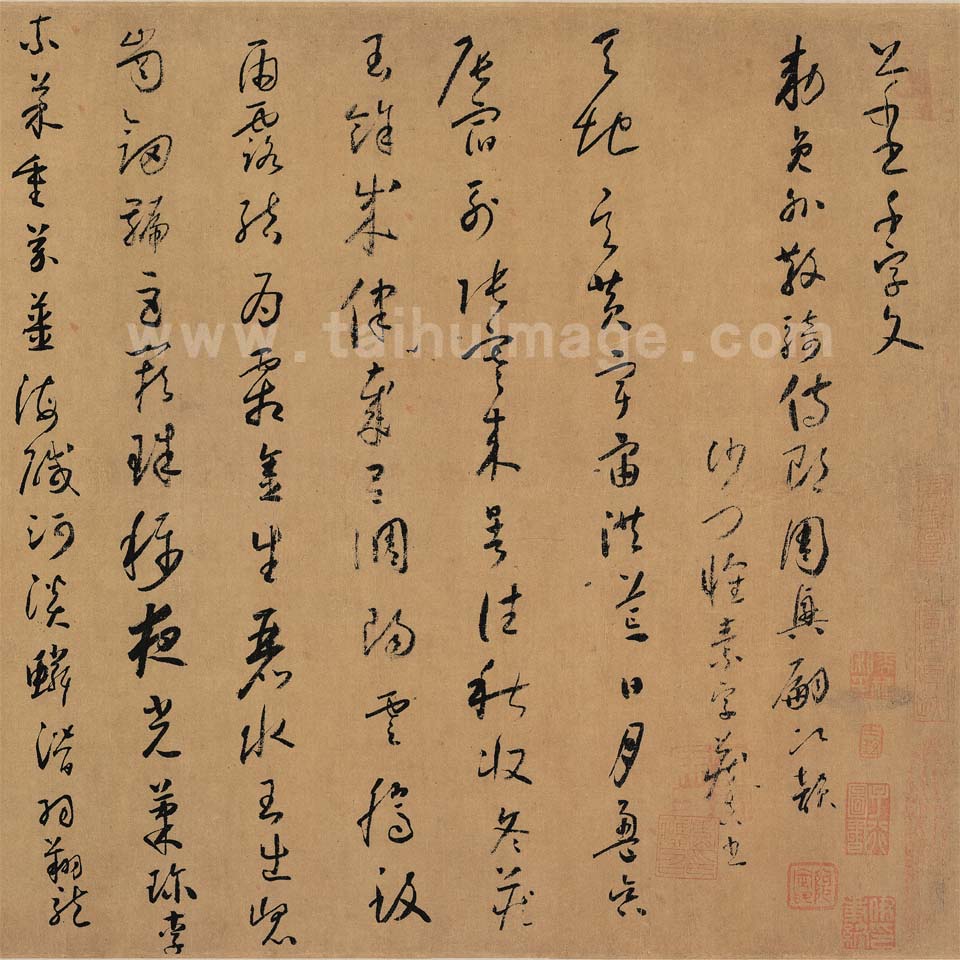 草書千字文
敕員外散騎侍郎周興嗣次韻
沙門懷素字藏真書
天地玄黃宇宙洪荒日月盈昃
辰宿列張寒來暑往秋收冬藏
閏餘成律歲呂調陽雲騰致
雨露結為霜金生麗水玉出崑
崗劍號巨闕珠稱夜光菓珍李
柰菜重芥薑海鹹河淡鱗潛羽翔龍
www.taihuimage.com